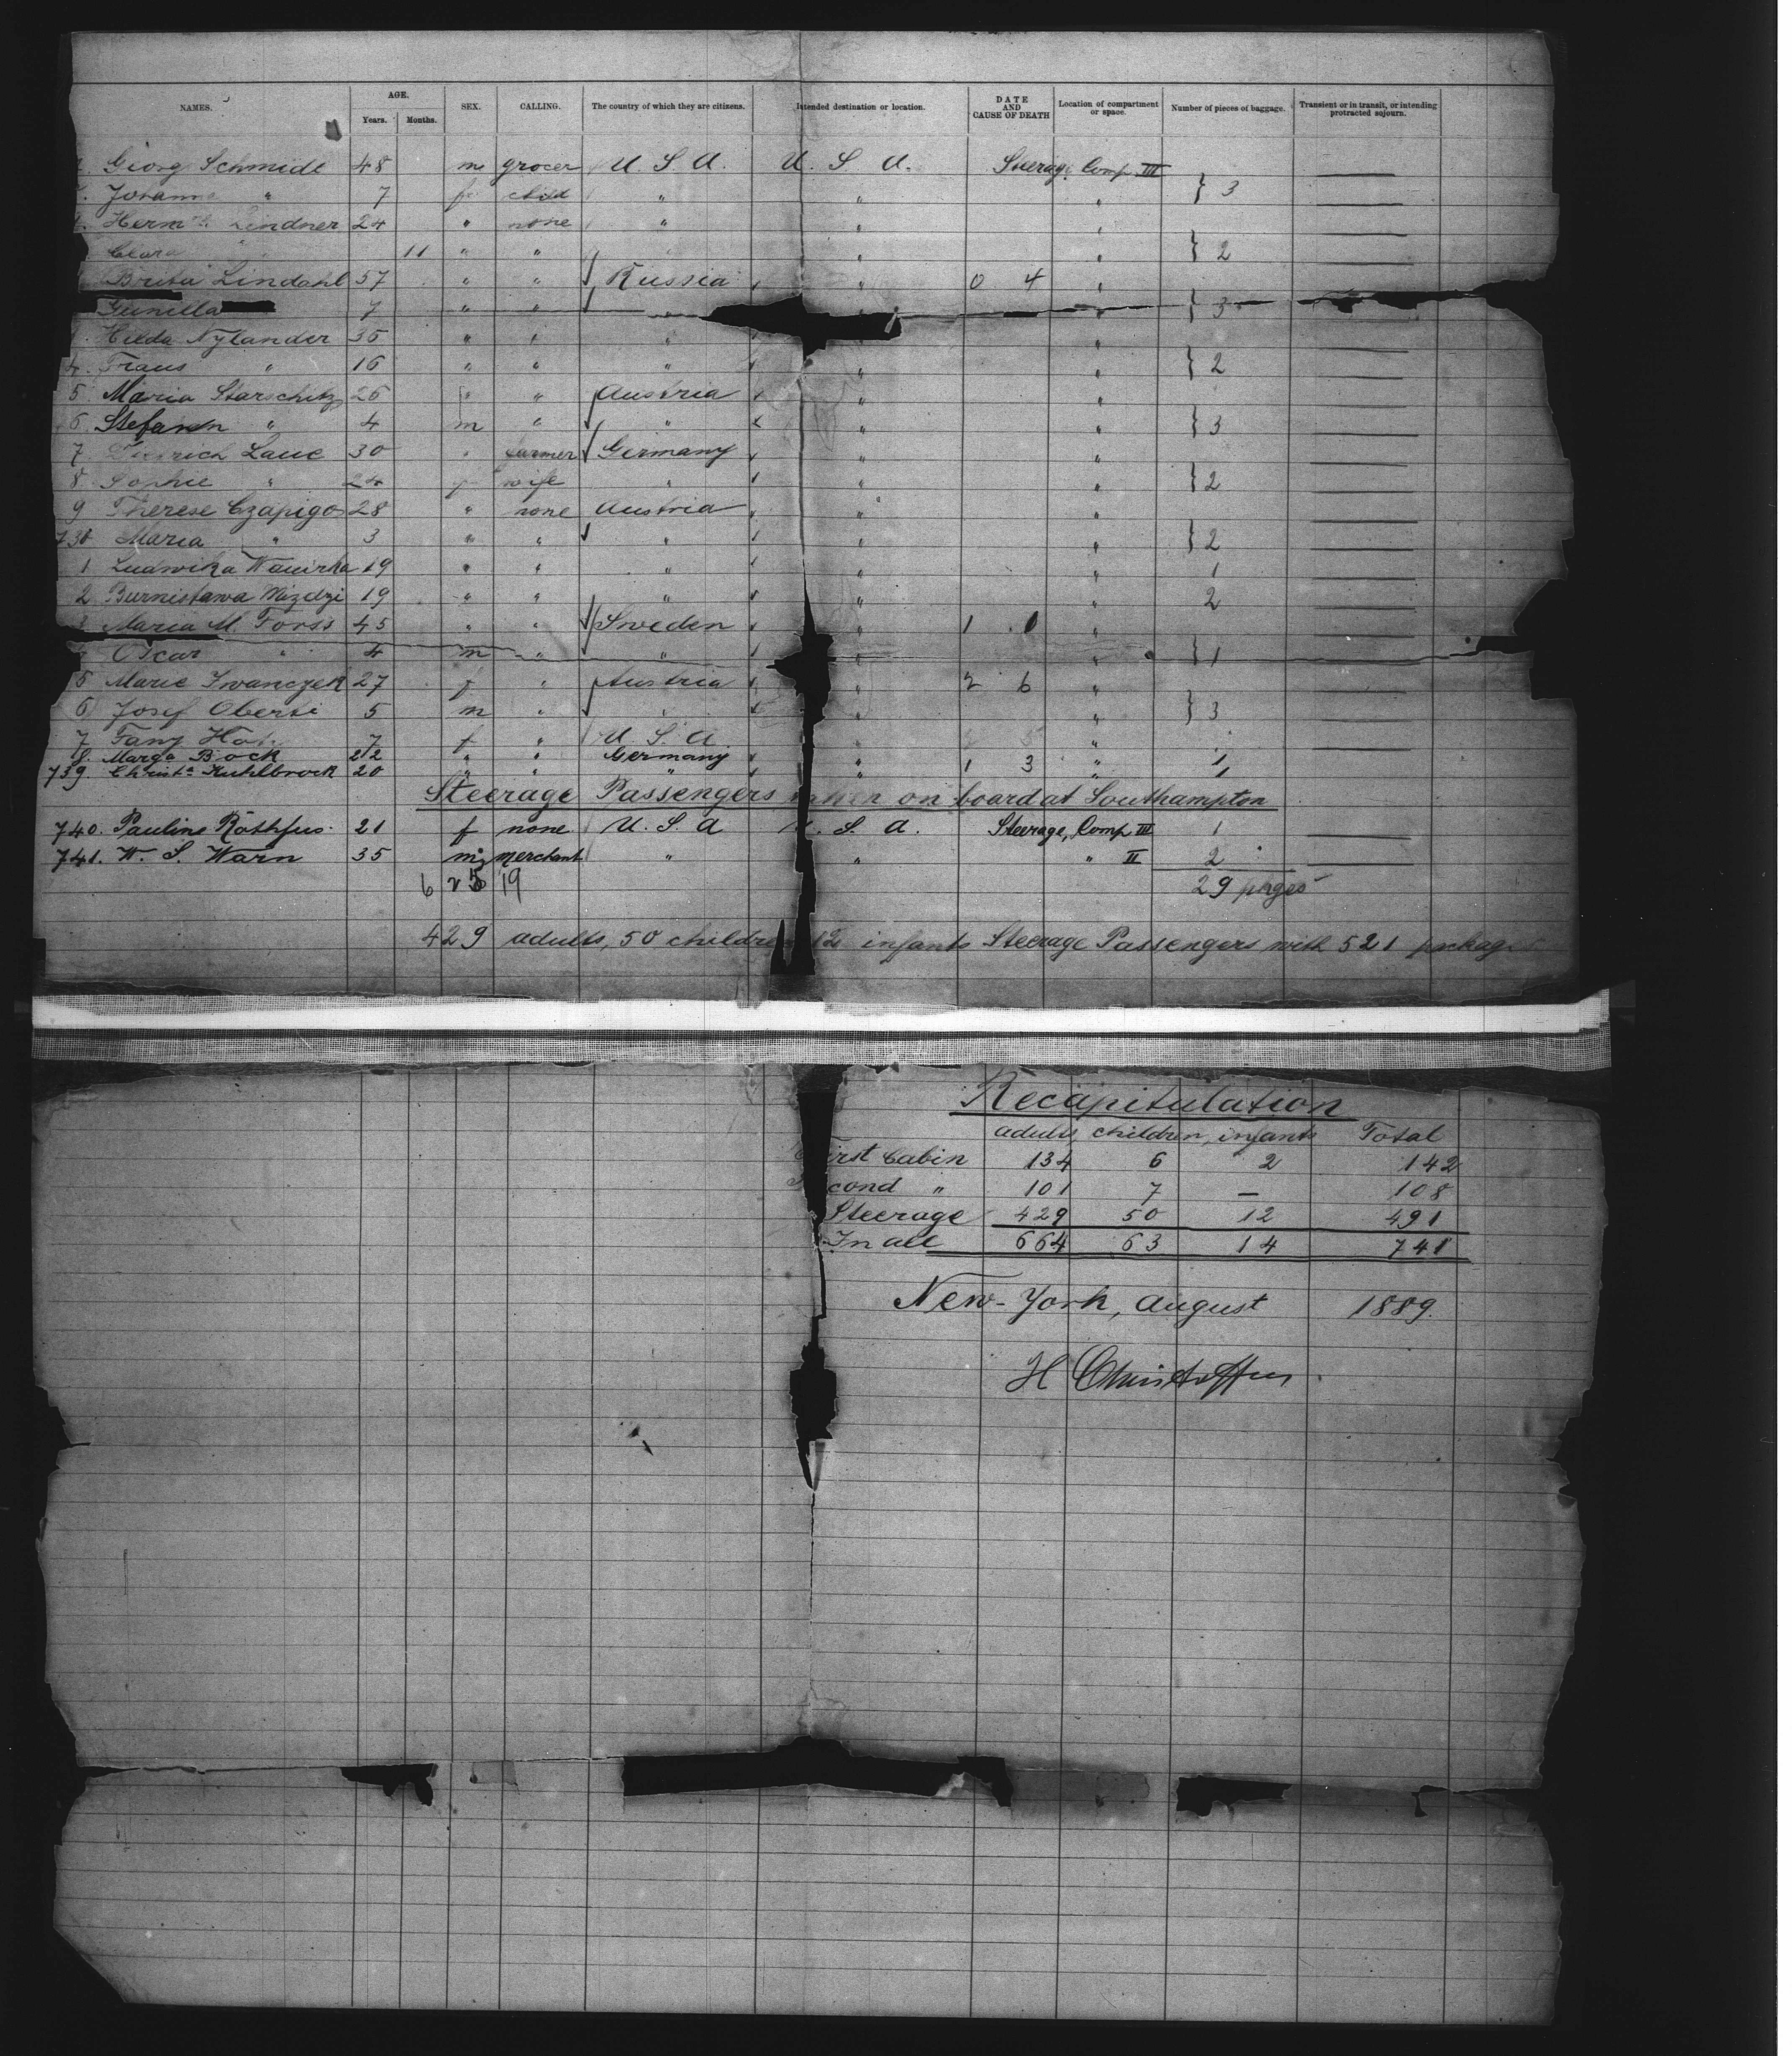 NAMES. AGE. Years. Months. SEX. CALLING. The country of which they are citizens. Intended destination or location. DATE AND CAUSE OF DEATH Location of compartment or space. Number of pieces of baggage. Transient or in transit, or intending protracted sojourn.
Georg Schmidt 48 m grocer U. S. A. U. S. A. Steerage Comp III
" 7 f child " " " } 3
Lindner 24 " none " " "
Clara 11 " " " " } 2
Brita Lindahl 57 " " Russia " 0 4 "
Gunilla 7 " " " " } 3
Hilda Nylander 35 " " " " "
4. Frans " 16 " " " " " } 2
5. Maria Starschitz 26 " " Austria " "
6. Stefan " 4 m " " " " } 3
7. Lane 30 " farmer Germany " "
8. Sophie " 24 f wife " " " } 2
9 Therese Czapigo 28 " none Austria " "
730 Maria " 3 " " " " " } 2
1 Ludwika 19 " " " " " 1
2 19 " " " " " 2
3 Maria M. Forss 45 " " Sweden " 1 0 "
Oscar " 4 m " " " " } 1
5 Marie Iwanczek 27 f " Austria " 2 6 "
6 Josef 5 m " " " } 3
7 Fany 7 f " U. S. A " " 1
8. Marga Bock 22 " " Germany " " 1
739. Christe Kuhlbrock 20 " " " " 1 3 " 1
Steerage Passengers taken on board at Southampton
740. Pauline Rothfus. 21 f none U. S. A U. S. A. Steerage, Comp III 1
741. W. S. Warn 35 m merchant " " " II 2
6 25 19 29 pages
429 adults, 50 children, 12 infants Steerage Passengers with 521 packages
Recapitulation
adults, children, infants Total
First Cabin 134 6 2 142
Second " 101 7 — 108
Steerage 429 50 12 491
In all 664 63 14 741
New-York, August 1889.
H Christoffers